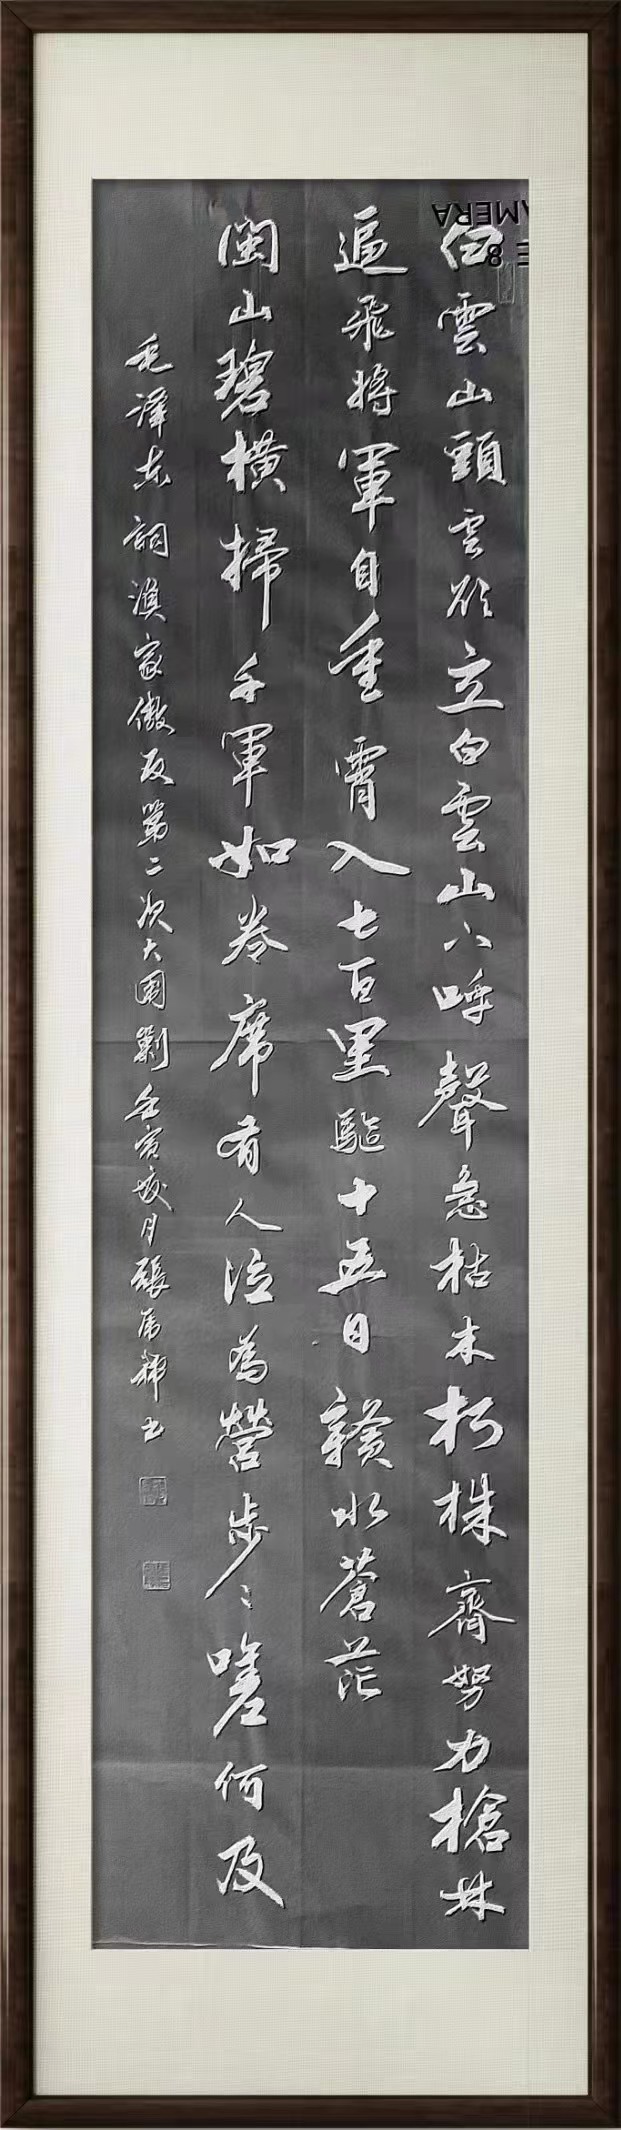 白雲山頭雲欲立白雲山下呼聲急枯木朽株齊努力槍林
逼飛將軍自重霄入七百里驅十五日贛水蒼茫
閩山碧橫掃千軍如卷席有人泣為營步々嗟何及
毛澤东詞漁家傲反第二次大围剿壬寅歲月張
AMERA
E 8